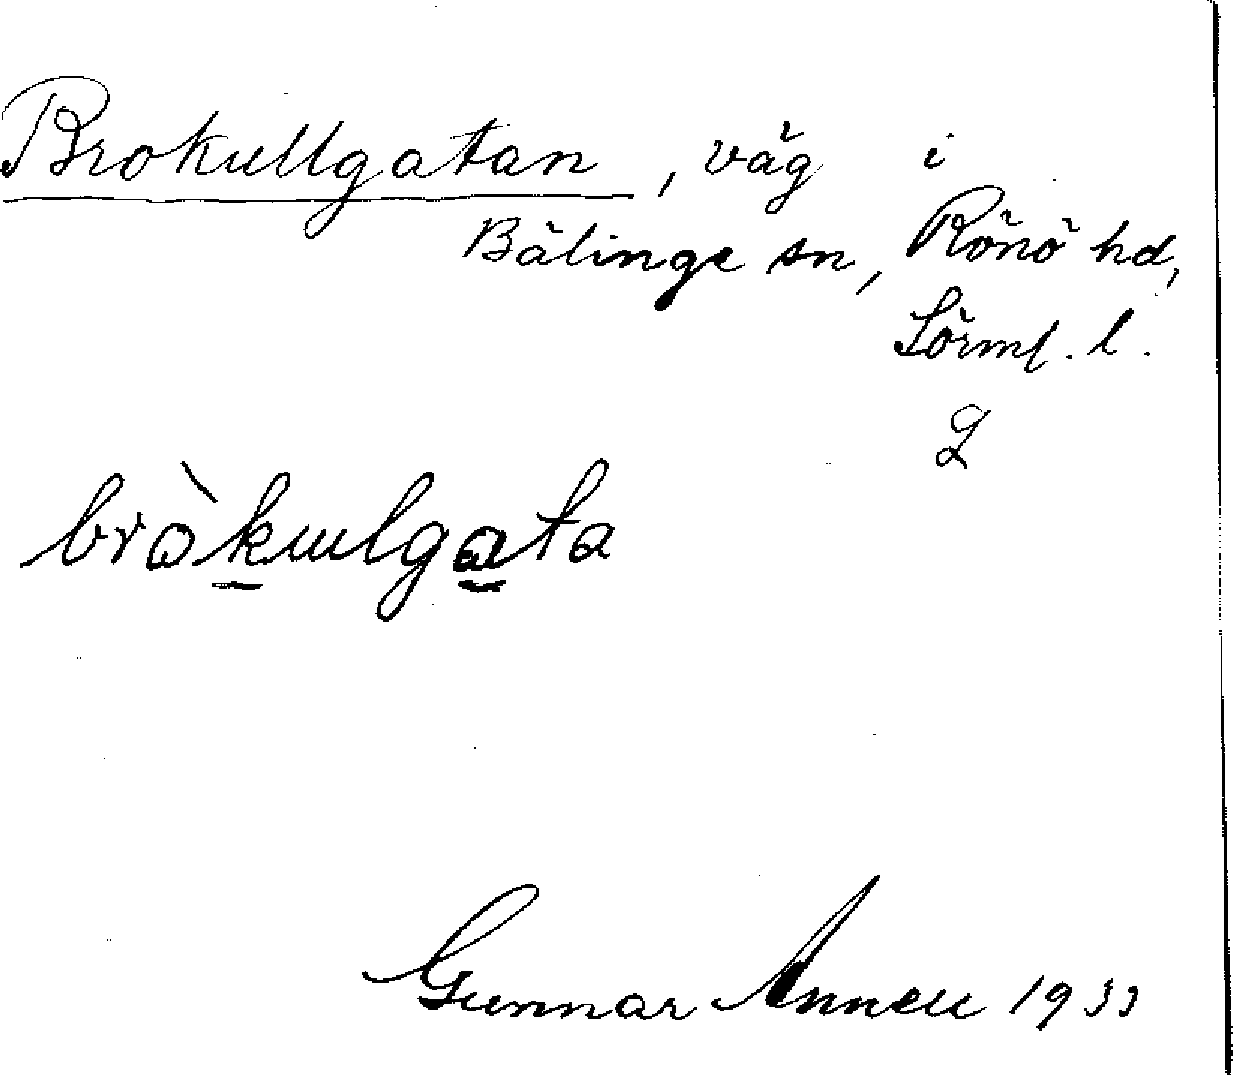 Brokullgatan, väg i
Bälinge sn, Rönö hd,
Sörml. l.
bròkullgata
Gunnar Annell 1933